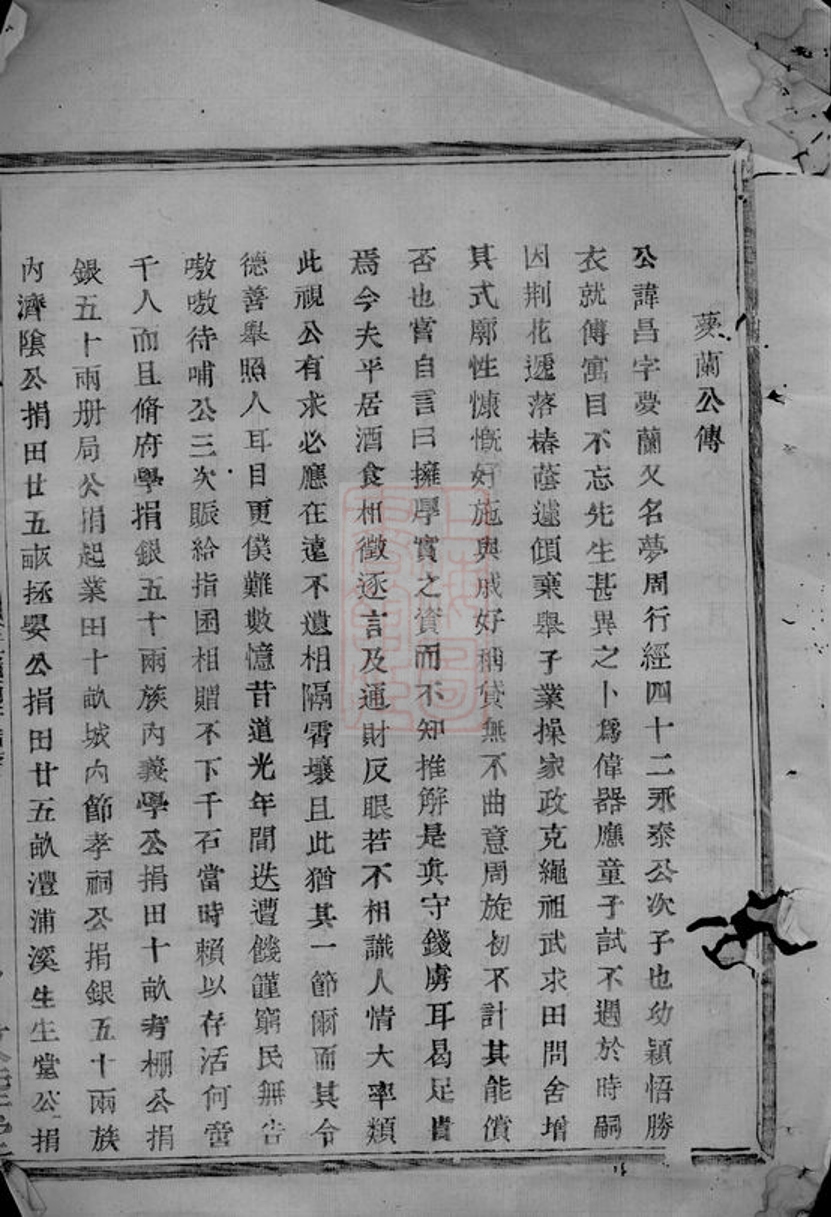 夢蘭公傳
公諱昌字夢蘭又名夢周行經四十二永泰公次子也幼穎悟勝
衣就傅寓目不忘先生甚異之卜爲偉器應童子試不遇於時嗣
因荆花遞落椿蔭遽傾棄舉子業操家政克繩祖武求田問舍增
其式廓性慷慨好施與戚好稱貸無不曲意周旋初不計其能償
否也嘗自言曰擁厚實之資而不知推解是眞守錢虜耳曷足貴
焉今夫平居酒食相徵逐言及通財反眼若不相識人情大率類
此視公有求必應在遠不遺相隔霄壤且此猶其一節爾而其令
德善舉照人耳目更僕難數憶昔道光年間迭遭饑饉窮民無告
嗷嗷待哺公三次賑給指囷相贈不下千石當時賴以存活何啻
千人而且脩府學捐銀五十兩族內義學公捐田十畝考棚公捐
銀五十兩册局公捐起業田十畝城內節孝祠公捐銀五十兩族
內濟陰公捐田廿五畝拯嬰公捐田廿五畝澧浦溪生生堂公捐